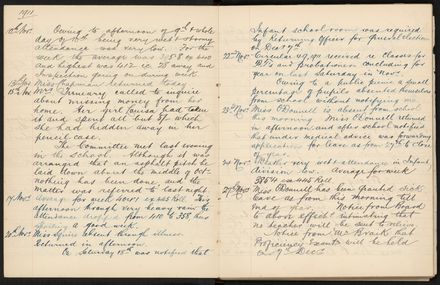 1911
Owing to afternoon of 9th & whole
day of 10th being very wet & stormy
attendance was very low. For the
week the average was
and highest was 412.
inspection going on during week
Miss Chapman returned today
Mrs January called to inquire
about missing money from her
home. Her girl Louisa had taken
it and spent all but 3/- which
she had hidden away in her
pencil case.
The Committee met last evening
in the School. Although it was
arranged that an asphalt path be
laid down about the middle of Oct
nothing has been done, and the
matter was referred to last night
17 Nov. Average for week
afternoon through very heavy rain the
attendance dropped from 410 to 358, thus
spoiling a good week.
20th Nov. Miss Squire absent through illness.
Returned in afternoon.
On Saturday 18th was notified that
Infant School room was required
by Returning Officer for
on Dec 7th.
22nd Nov. Circular re Classes for
and concluding for
year on last Saturday in Nov.
Owing to a public picnic a small
percentage of pupils absented themselves
from school without notifying me.
23rd Nov. Miss O'Donnell is absent from school
this morning. Miss O'Donnell returned
in afternoon and after school notified
his under medical advice was forwarding
application for leave as from 27th to close
of year.
24 Nov. Weather very wet & attendances in Infant
division low. Average for week
27th Nov. Miss O'Donnell has been granted sick
leave as from this morning till
end of year. Notice from Board
to above effect & intimating that
no teacher will be sent to relieve
Notice from Mr Braik that
Proficiency Exam will be held
on 9th Dec.